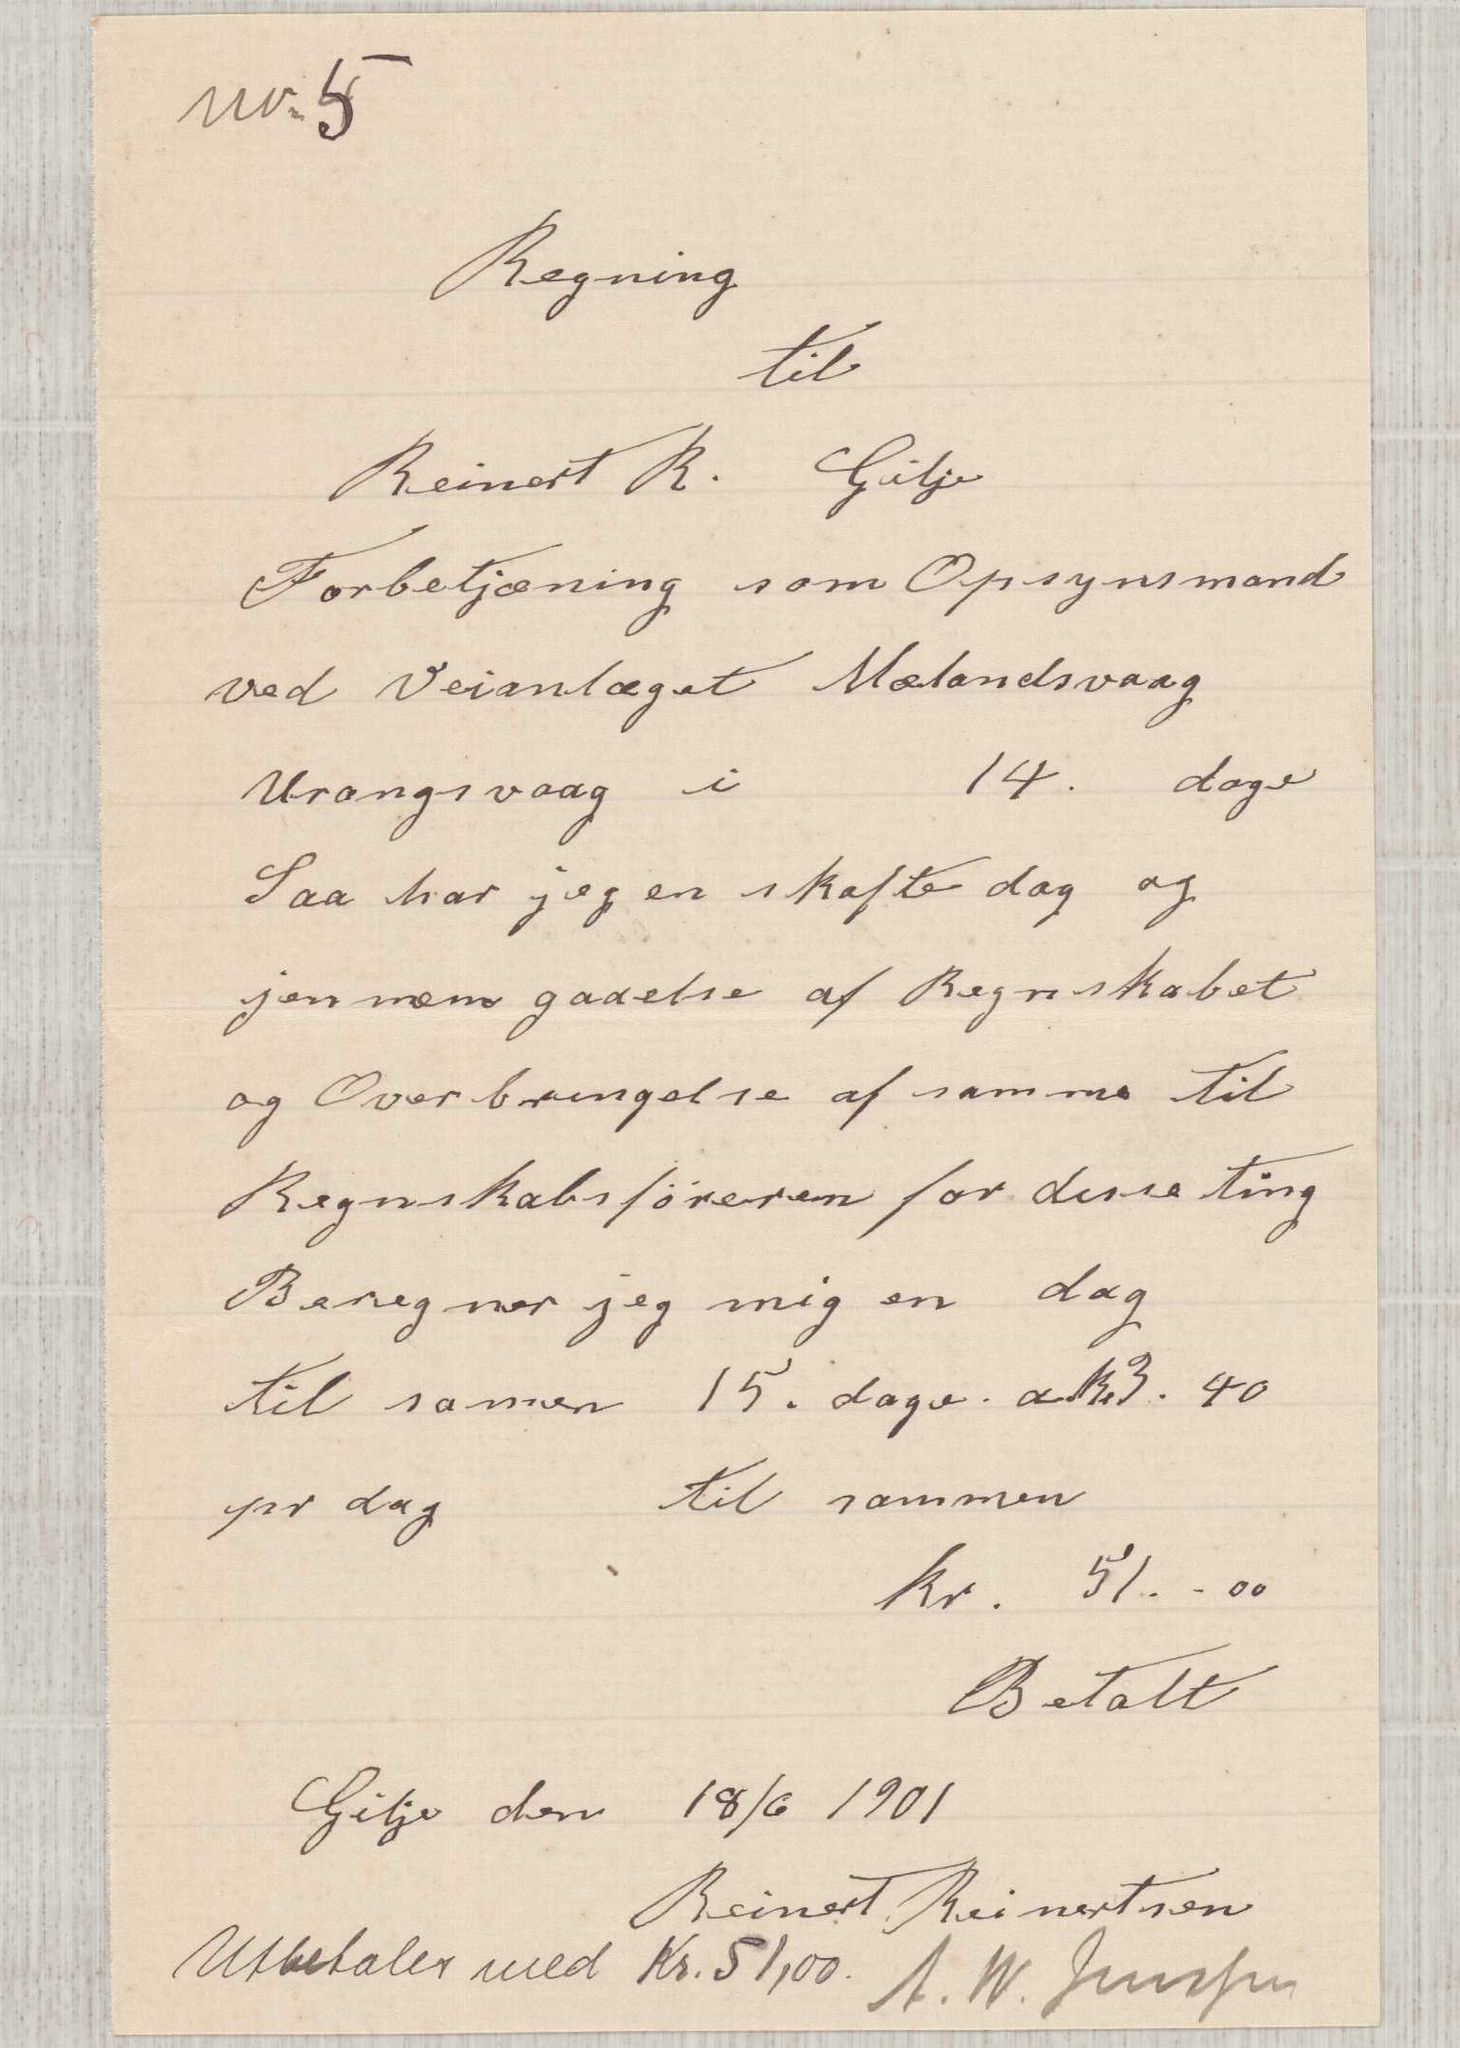 no. 5
Regning
til
Reinert R. Gilje
Forbetjæning som Opsynsmand
ved Veianlæget Mælandsvaag
Urangsvaag i 14. dage
Saa har jeg en skafte dag og
jennem gaaelse af Regnskabet
og Overbringelse af samme til
Regnskabsföreren for disse ting
Beregner jeg mig en dag
til samen 15. dage. a Kr 3. 40
pr dag til sammen
kr. 51. - 00
Betalt
Gilje den 18/6 1901
Reinert Reinertsen
Utbetales med Kr. 51,00. A. W.